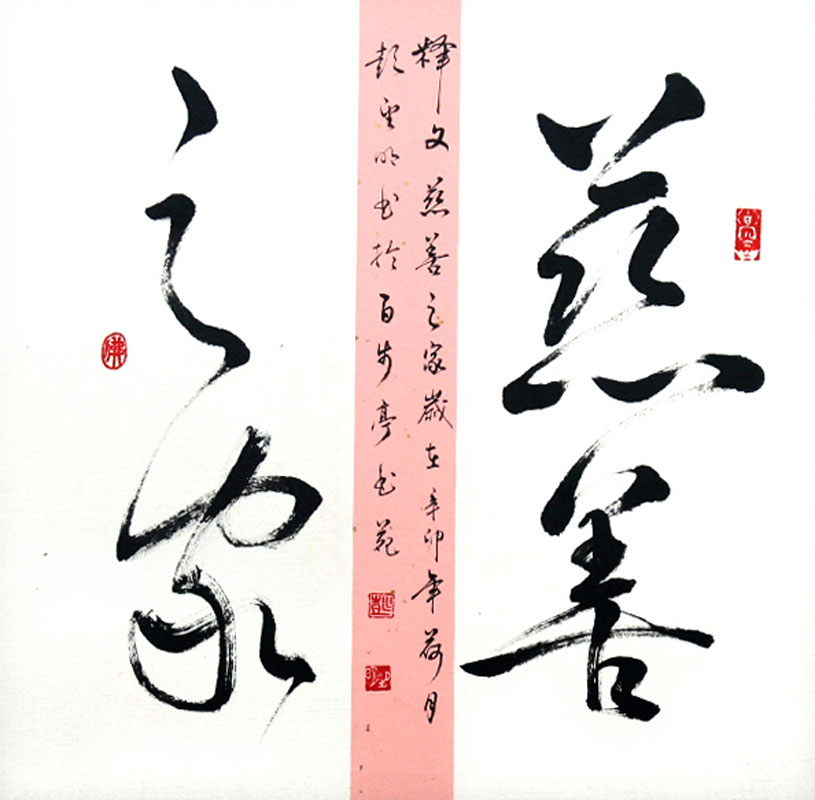 慈善
之家
释文慈善之家歲在辛卯年荷月
彭圣明书於百步亭书苑